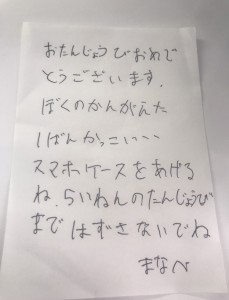 おたんじょうびおめで
とうございます.
ぼくのかんがえた
いばんかっこいいい
スマホケースをあげる
ね.らいねんのたんじょうび
まで はずさないでね
まなべ